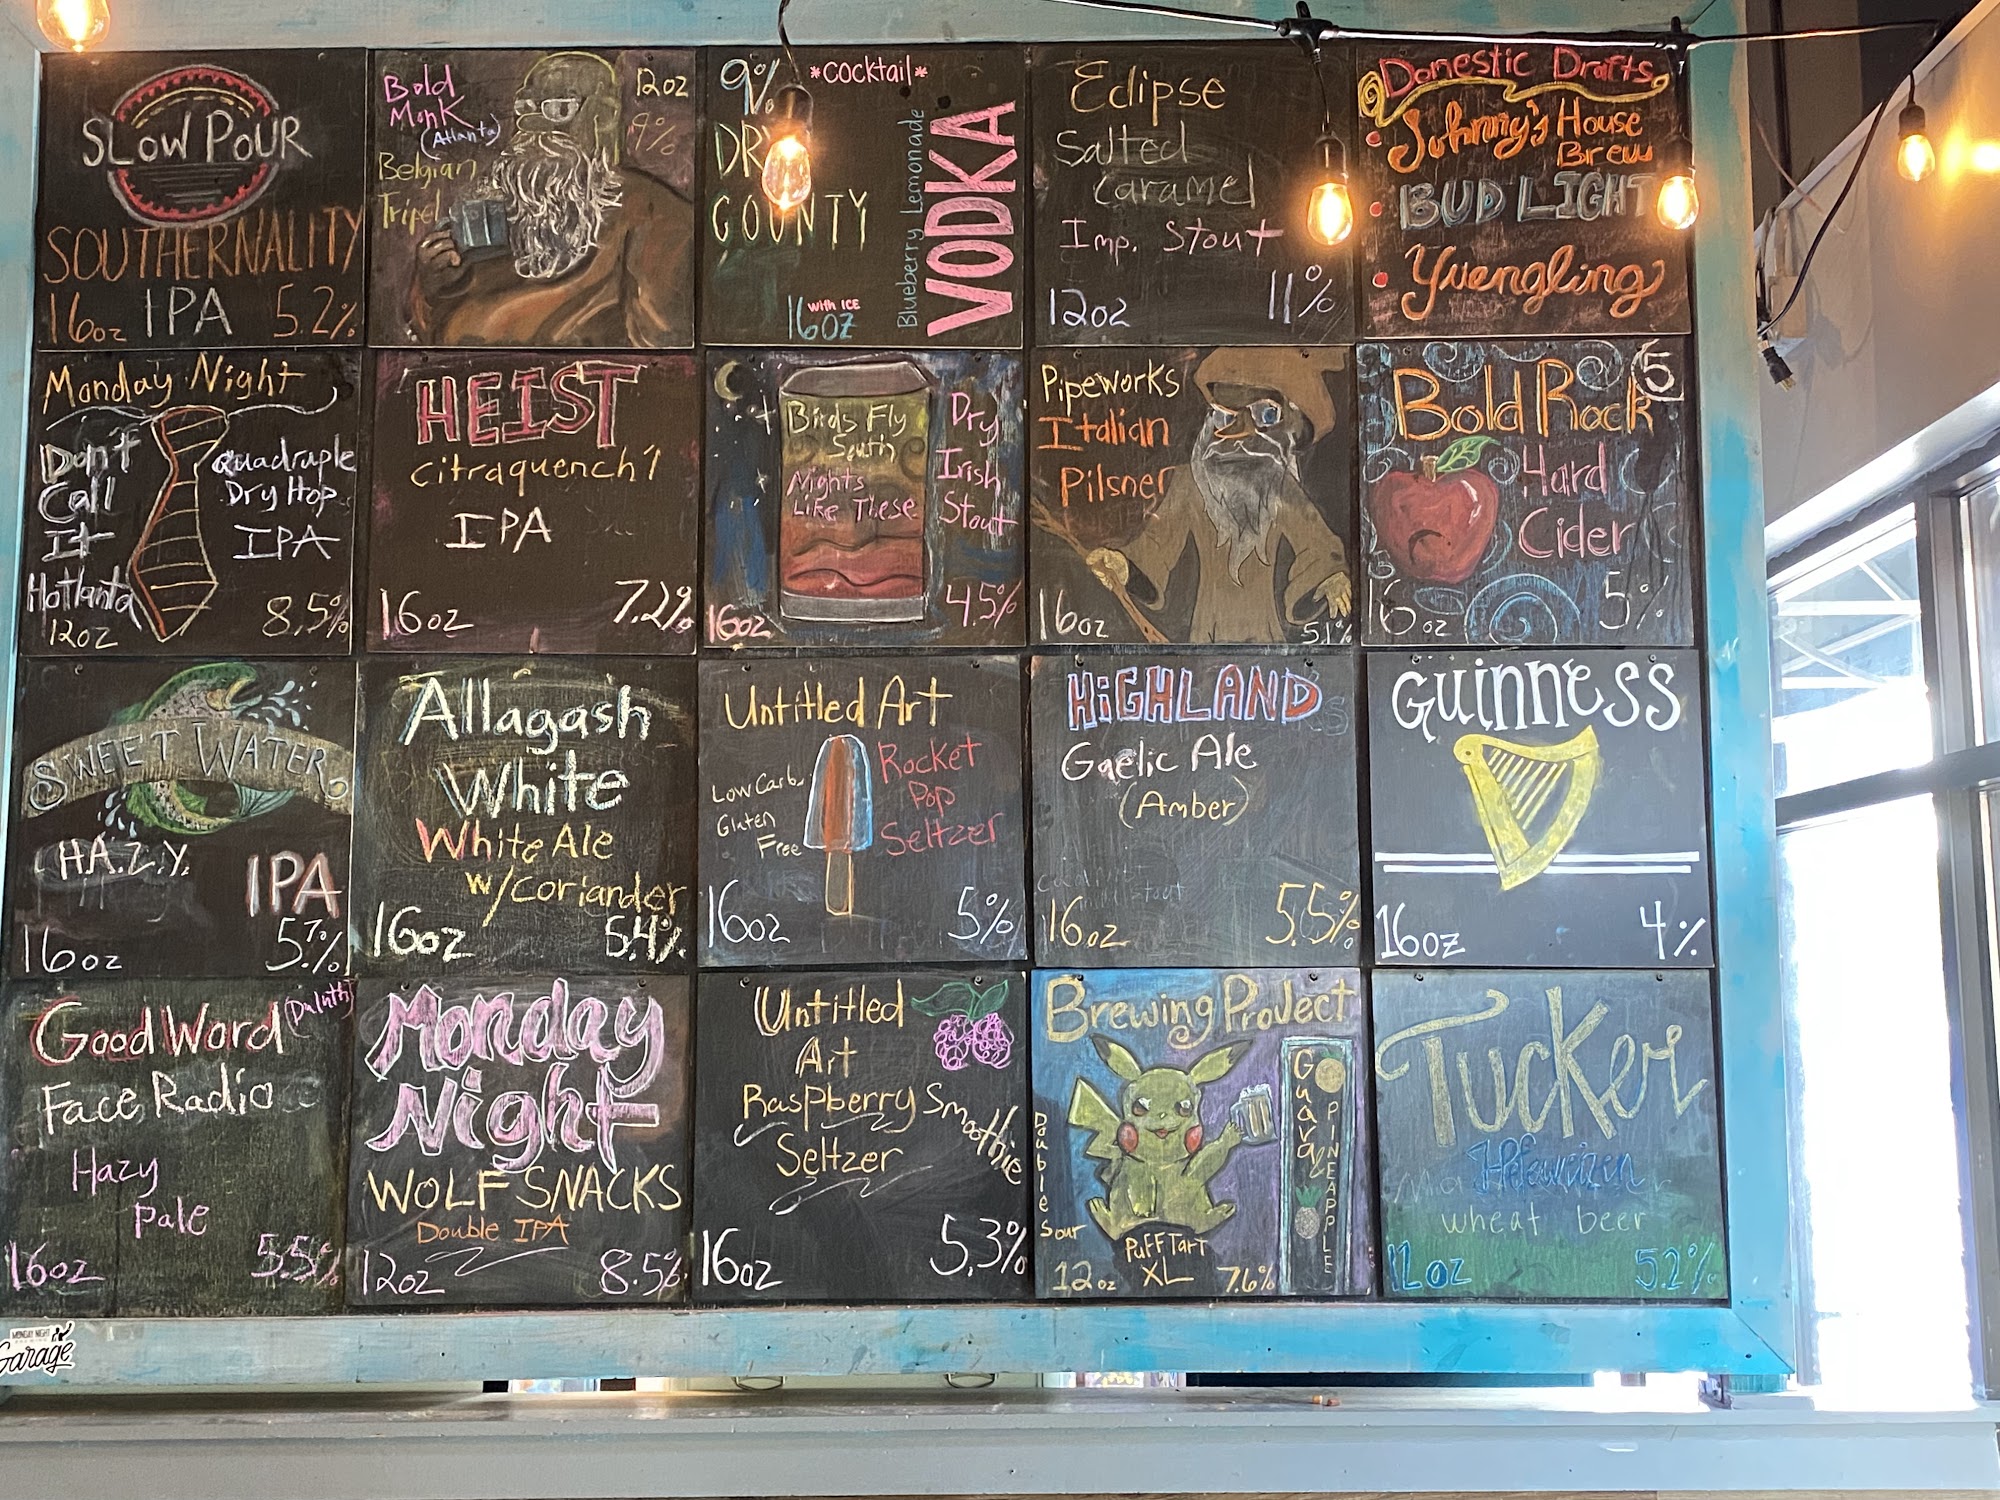 SLOW POUR
SOUTHERNALITY
16oz IPA 5.2%
Bold
Monk
(Atlanta)
Belgian
Tripel
12oz
9%
9% *cocktail*
DRY
COUNTY
16oz
with ICE
Blueberry Lemonade
VODKA
Eclipse
Salted
Caramel
Imp. Stout
12oz 11%
Domestic Drafts
Johnny's House
Brew
BUD LIGHT
Yuengling
Monday Night
Don't
Call
It
Hotlanta
12oz
Quadruple
Dry Hop
IPA
8.5%
HEIST
citraquench'l
IPA
16oz 7.2%
Birds Fly
South
Nights
Like These
Dry
Irish
Stout
16oz 4.5%
Pipeworks
Italian
Pilsner
16oz 5.1%
5
Bold Rock
Hard
Cider
16oz 5%
SWEET WATER
H.A.Z.Y.
IPA
16oz 5.7%
Allagash
White
White Ale
w/coriander
16oz 5.4%
Untitled Art
Low Carb
Gluten
Free
Rocket
Pop
Seltzer
16oz 5%
HIGHLAND
Gaelic Ale
(Amber)
16oz 5.5%
GUINNESS
16oz 4%
Good Word (Duluth)
Face Radio
Hazy
Pale
16oz 5.5%
Monday
Night
WOLF SNACKS
Double IPA
12oz 8.5%
Untitled
Art
Raspberry Smoothie
Seltzer
16oz 5.3%
Brewing Project
Double Sour
Guava &
PINEAPPLE
PUFF TART
XL
12oz 7.6%
TUCKER
Hefeweizen
wheat beer
12oz 5.2%
MONDAY NIGHT
Garage